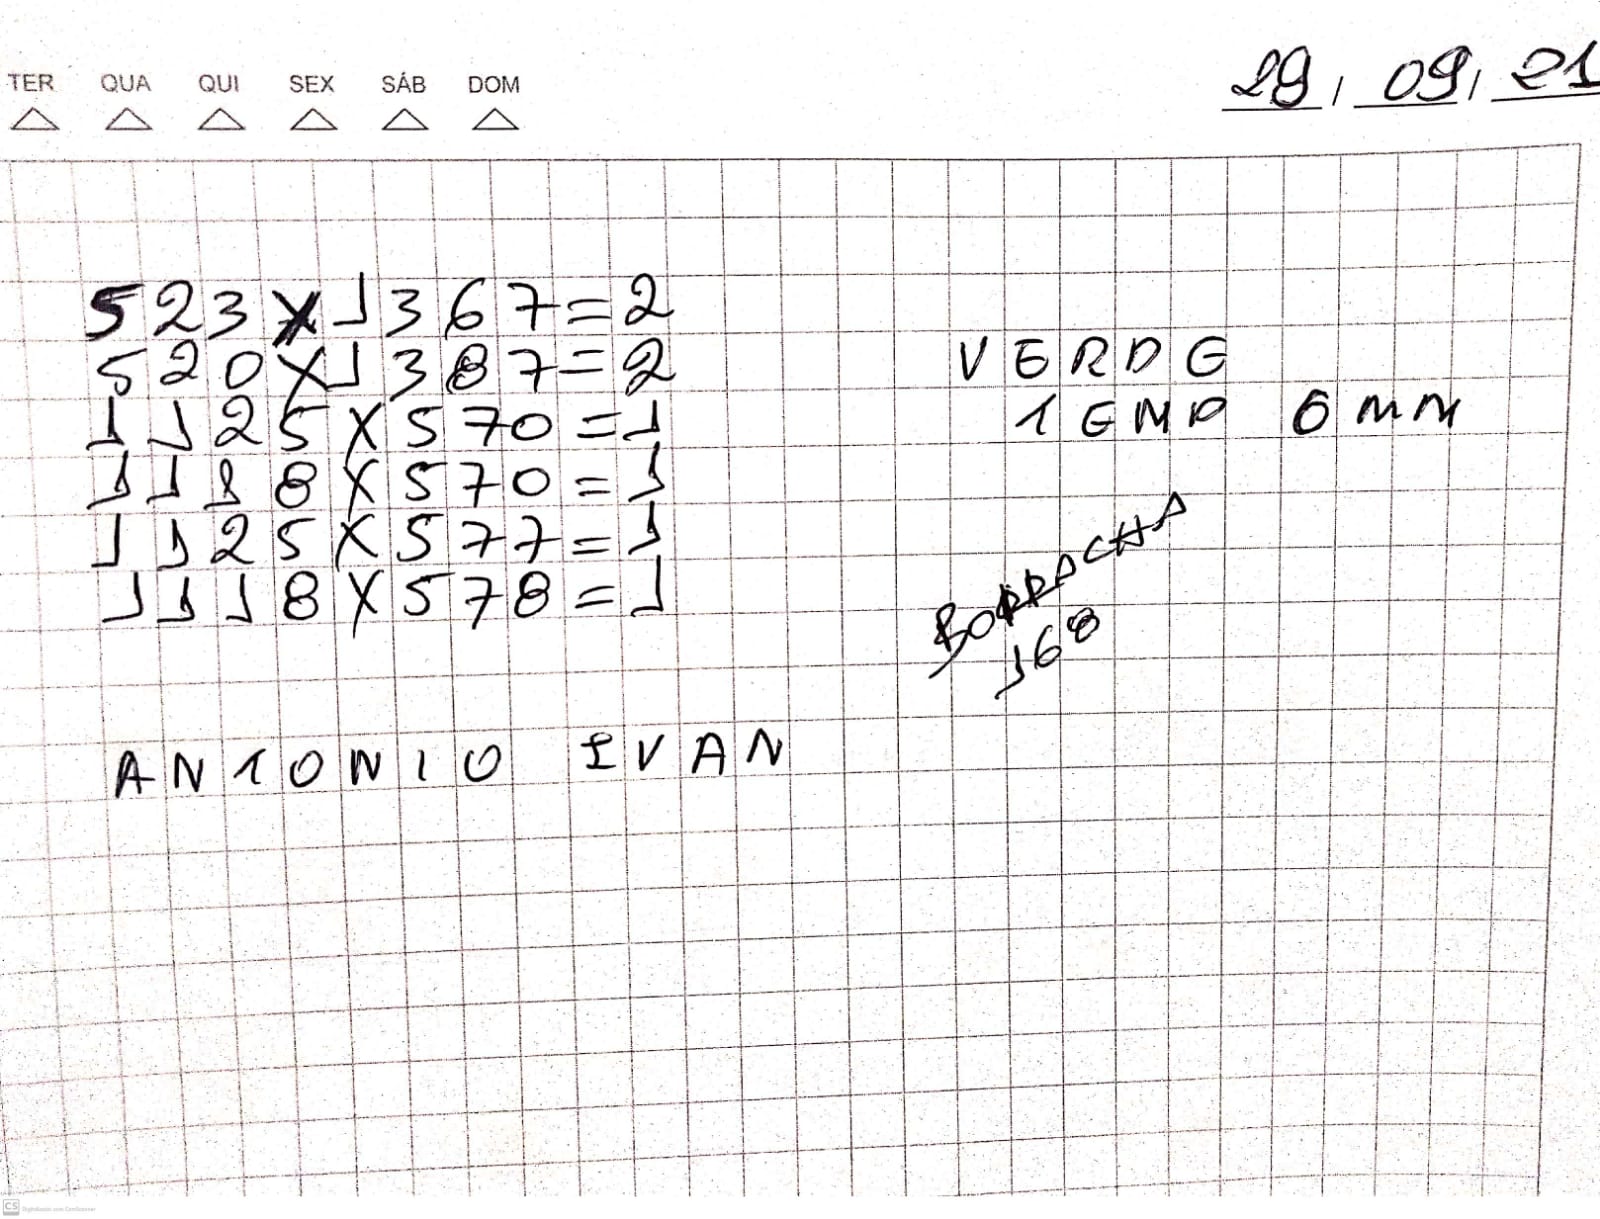 TER QUA QUI SEX SÁB DOM
29/09/21
523X1367=2
520X1387=2
1125X570=1
1118X570=1
1125X577=1
1118X578=1
VERDE
TEMP 6MM
BORRACHA
168
ANTONIO IVAN
CS Digitalizado com CamScanner